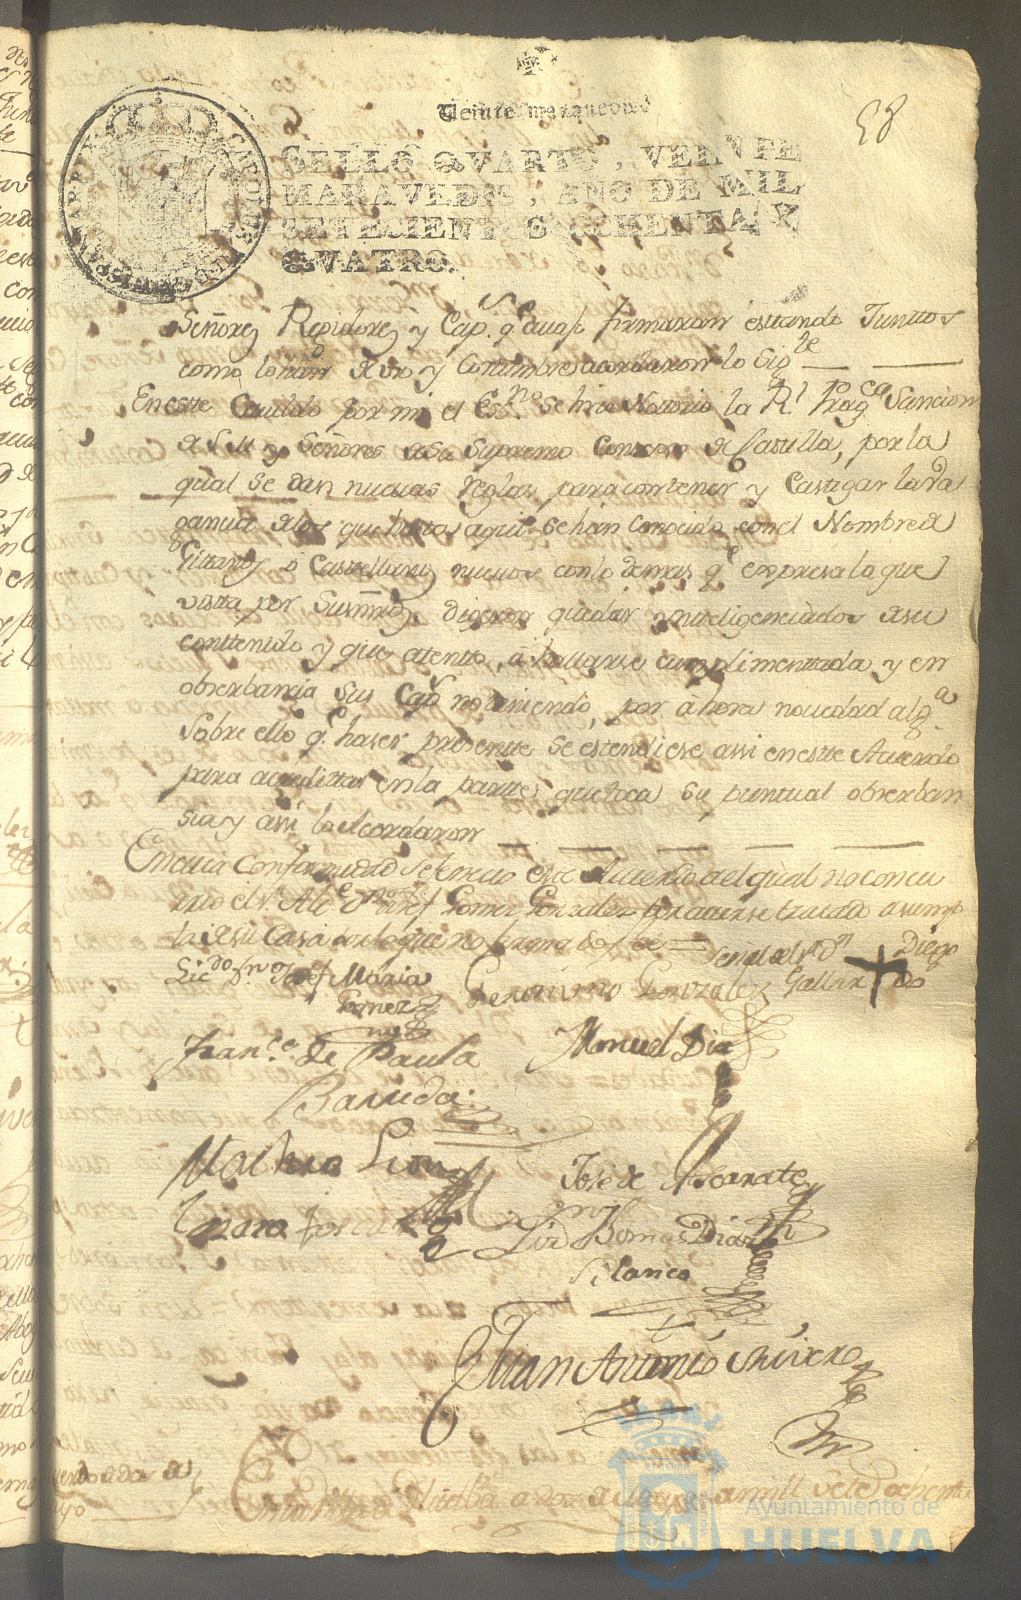 Veinte maravedis
58
SELLO QVARTO, VEINTE
MARAVEDIS, AÑO DE MIL
SETECIENTOS OCHENTA Y
QVATRO.
Señores Regidores y Cap.s q.e avajo firmaran estando Juntos
como lo han de uso y Costumbre acordaron lo Sig.te
En este Cavildo por mi el Ess.no se hizo Notorio la R.l Prag.ca Sancion
de S.M. y Señores de su Supremo Consejo de Castilla, por la
qual se dan nuevas reglas para contener y Castigar la Va
gancia de los que hasta aqui se han Conocido con el Nombre de
Gitanos, o Castellanos nuevos con lo demas q.e expresa la que
vista por Sus mrds digeron quedar ynteligenciados de su
conttenido y que atento, a hallarse cumplimentada y en
obserbancia sus Cap.s no teniendo, por ahora novedad alg.a
Sobre ello q.e hacer presente se estendiese assi en este Acuerdo
para acreditar en la parte que toca su puntual obserban
sia y assi lo Acordaron
En cuia Conformidad se fenecio este Acuerdo del qual no concu
rrio el s.r Alc.e D.n Josef Gomez Gonzalez por averse tratado
de su Casa por lo que no firma doy fee = Señal del s.r D.n Diego
Lic.do D.n Josef Maria Geronimo Gonzalez Gallar + do
Gomez
Fran.co de Paula Manuel Diaz
Barreda
Jose de Ascarate
Diaz
Blanco
Juan Antonio
Acuerdo de dos de
Mayo
En la Villa de Huelba a dos de Mayo de mill sete.s ochenta
Ayuntamiento de
HUELVA